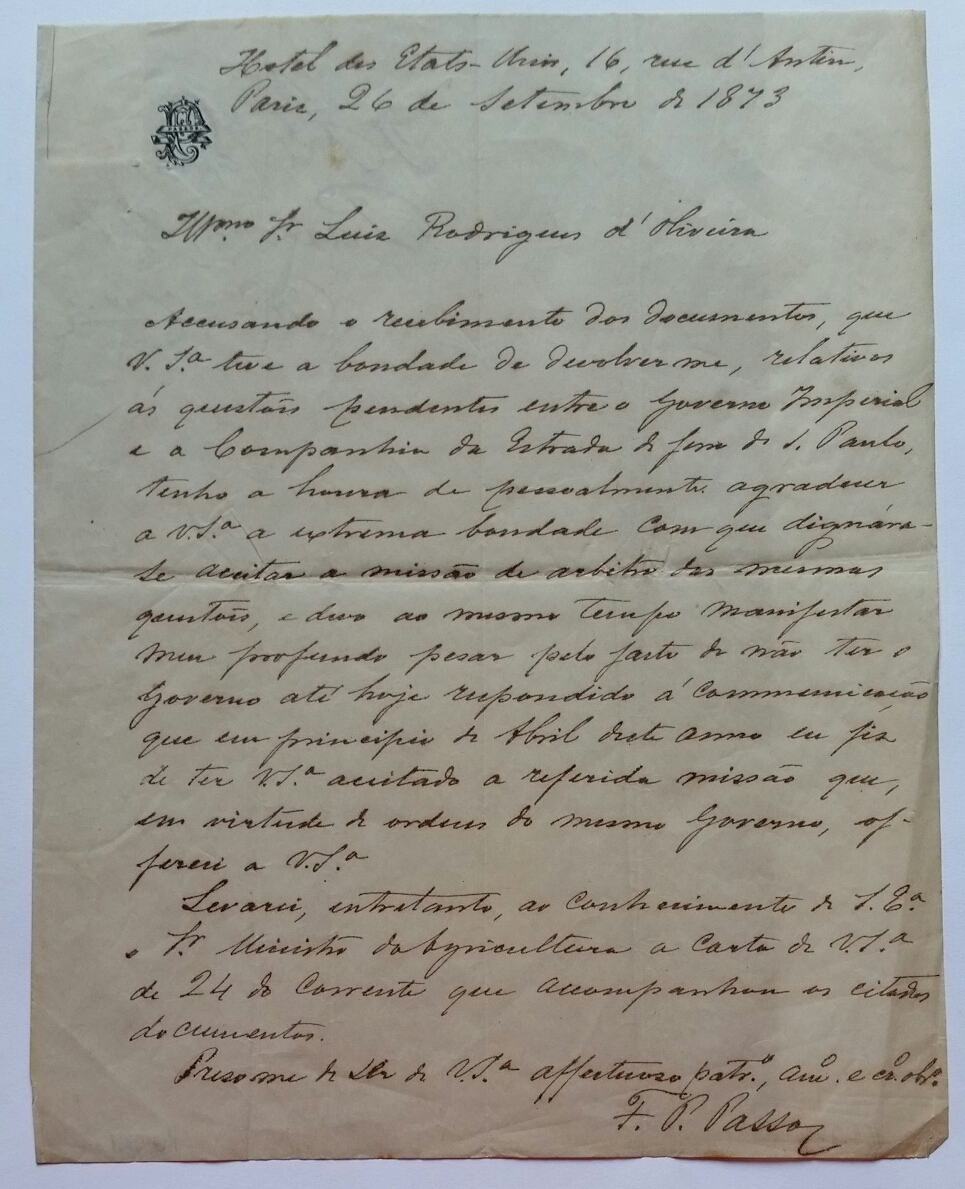 Hotel des Etats-Unis, 16, rue d'Antin,
Paris, 26 de Setembro de 1873
Illmo. Sr. Luiz Rodrigues d'Oliveira
Accusando o recebimento dos documentos, que
V. Sª teve a bondade de devolver me, relativos
ás questões pendentes entre o Governo Imperial
e a Companhia da Estrada de ferro de S. Paulo,
tenho a honra de pessoalmente agradecer
a V. Sª a extrema bondade com que dignára-
se aceitar a missão de arbitro das mesmas
questões, e devo ao mesmo tempo manifestar
meu profundo pesar pelo facto de não ter o
Governo até hoje respondido á communicação
que em principio de Abril deste anno eu fiz
de ter V. Sª aceitado a referida missão que,
em virtude de ordens do mesmo Governo, of-
fereci a V. Sª
Levarei, entretanto, ao conhecimento de S. Eª.
o Sr. Ministro da Agricultura a carta de V. Sª
de 24 do corrente que acompanhou os citados
documentos.
Preso me de ser de V. Sª affectuoso patr.º, amº. e crº. obrº.
F. P. Passos